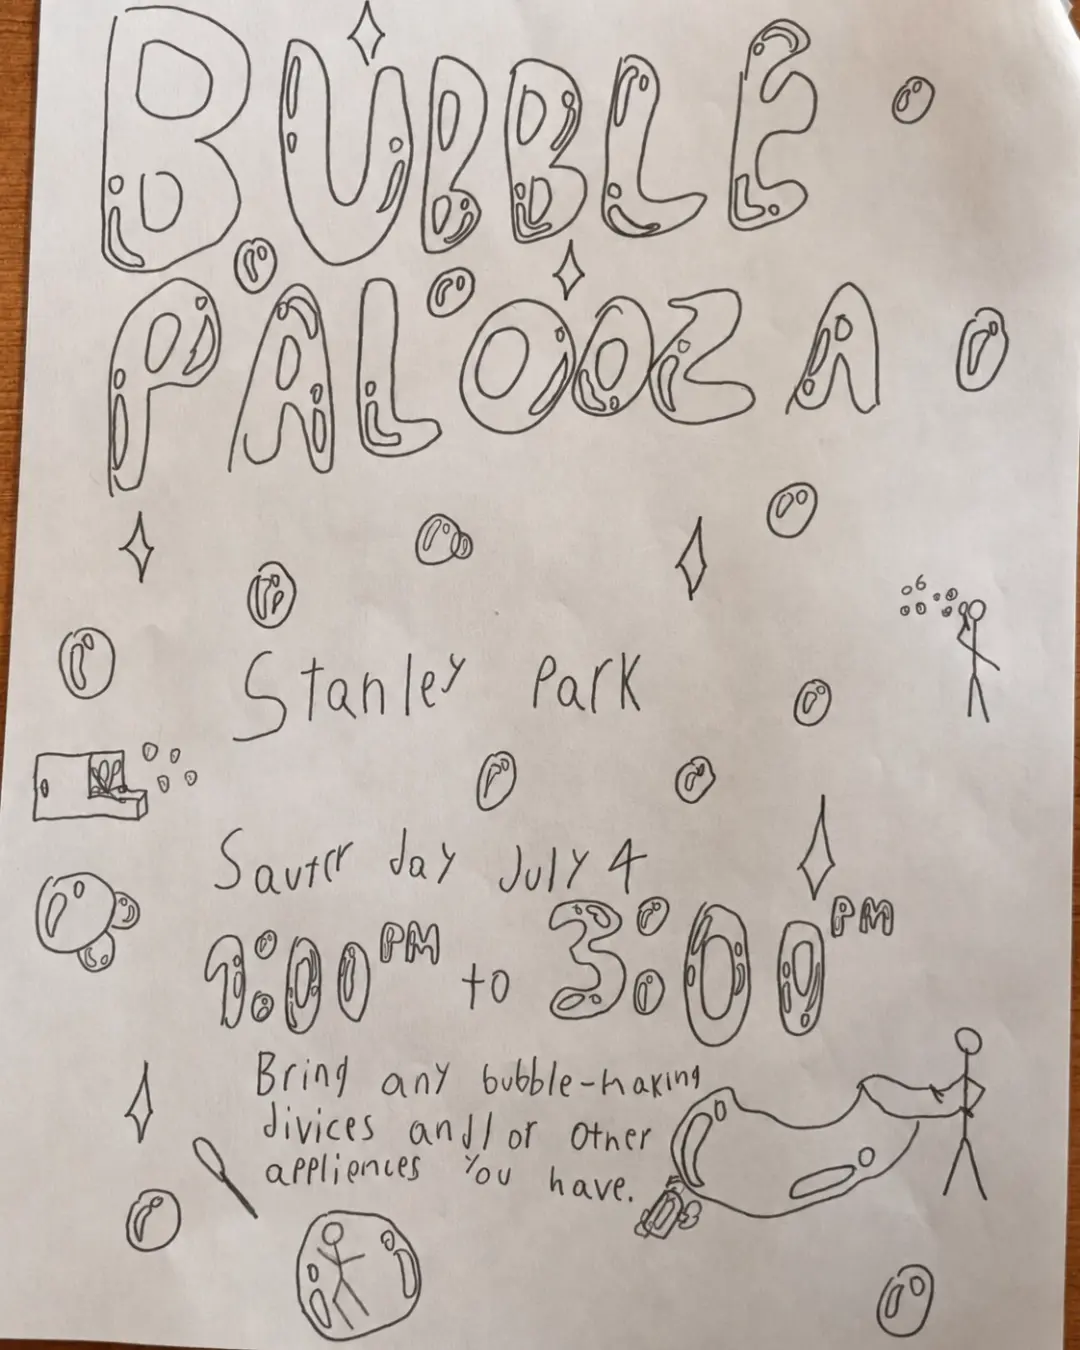 BUBBLE
PALOOZA
Stanley Park
Sauter day July 4
1:00PM to 3:00PM
Bring any bubble-making
divices and/or other
appliences you have.